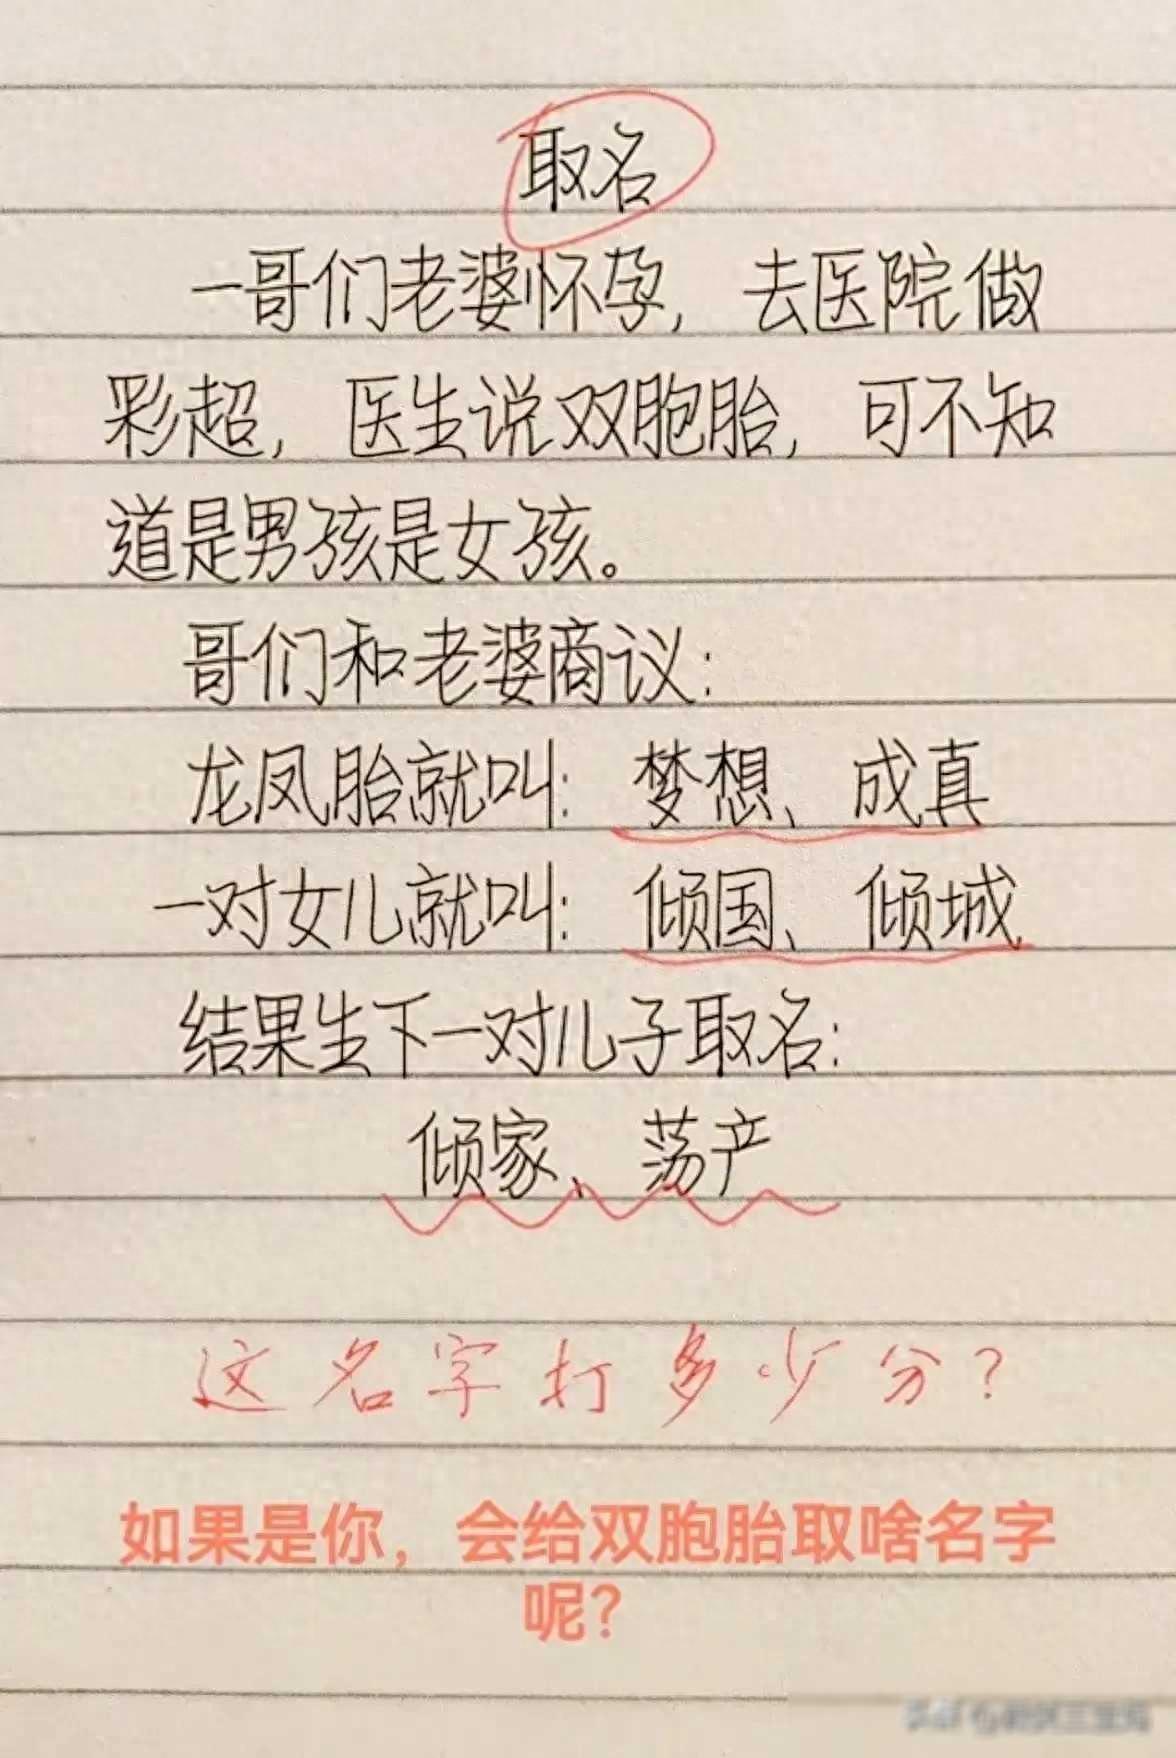 取名
一哥们老婆怀孕，去医院做
彩超，医生说双胞胎，可不知
道是男孩是女孩。
哥们和老婆商议：
龙凤胎就叫：梦想、成真
一对女儿就叫：倾国、倾城
结果生下一对儿子取名：
倾家、荡产
这名字打多少分？
如果是你，会给双胞胎取啥名字
呢？